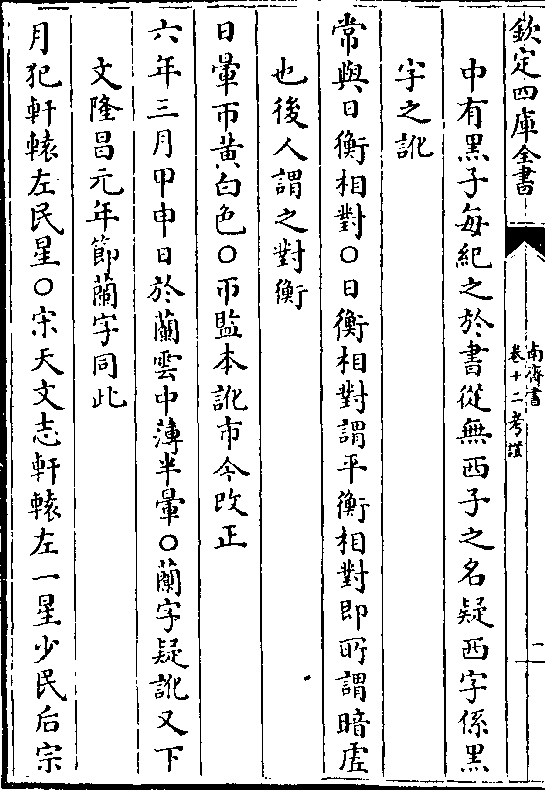 欽定四庫全書
南齊書
卷十二考證
二
中有黑子每紀之於書從無西子之名疑西字係黑
字之訛
常與日衡相對○日衡相對謂平衡相對即所謂暗虛
也後人謂之對衡
日暈帀黃白色○帀監本訛市今改正
六年三月甲申日於蘭雲中薄半暈○蘭字疑訛又下
文隆昌元年節蘭字同此
月犯軒轅左民星○宋天文志軒轅左一星少民后宗